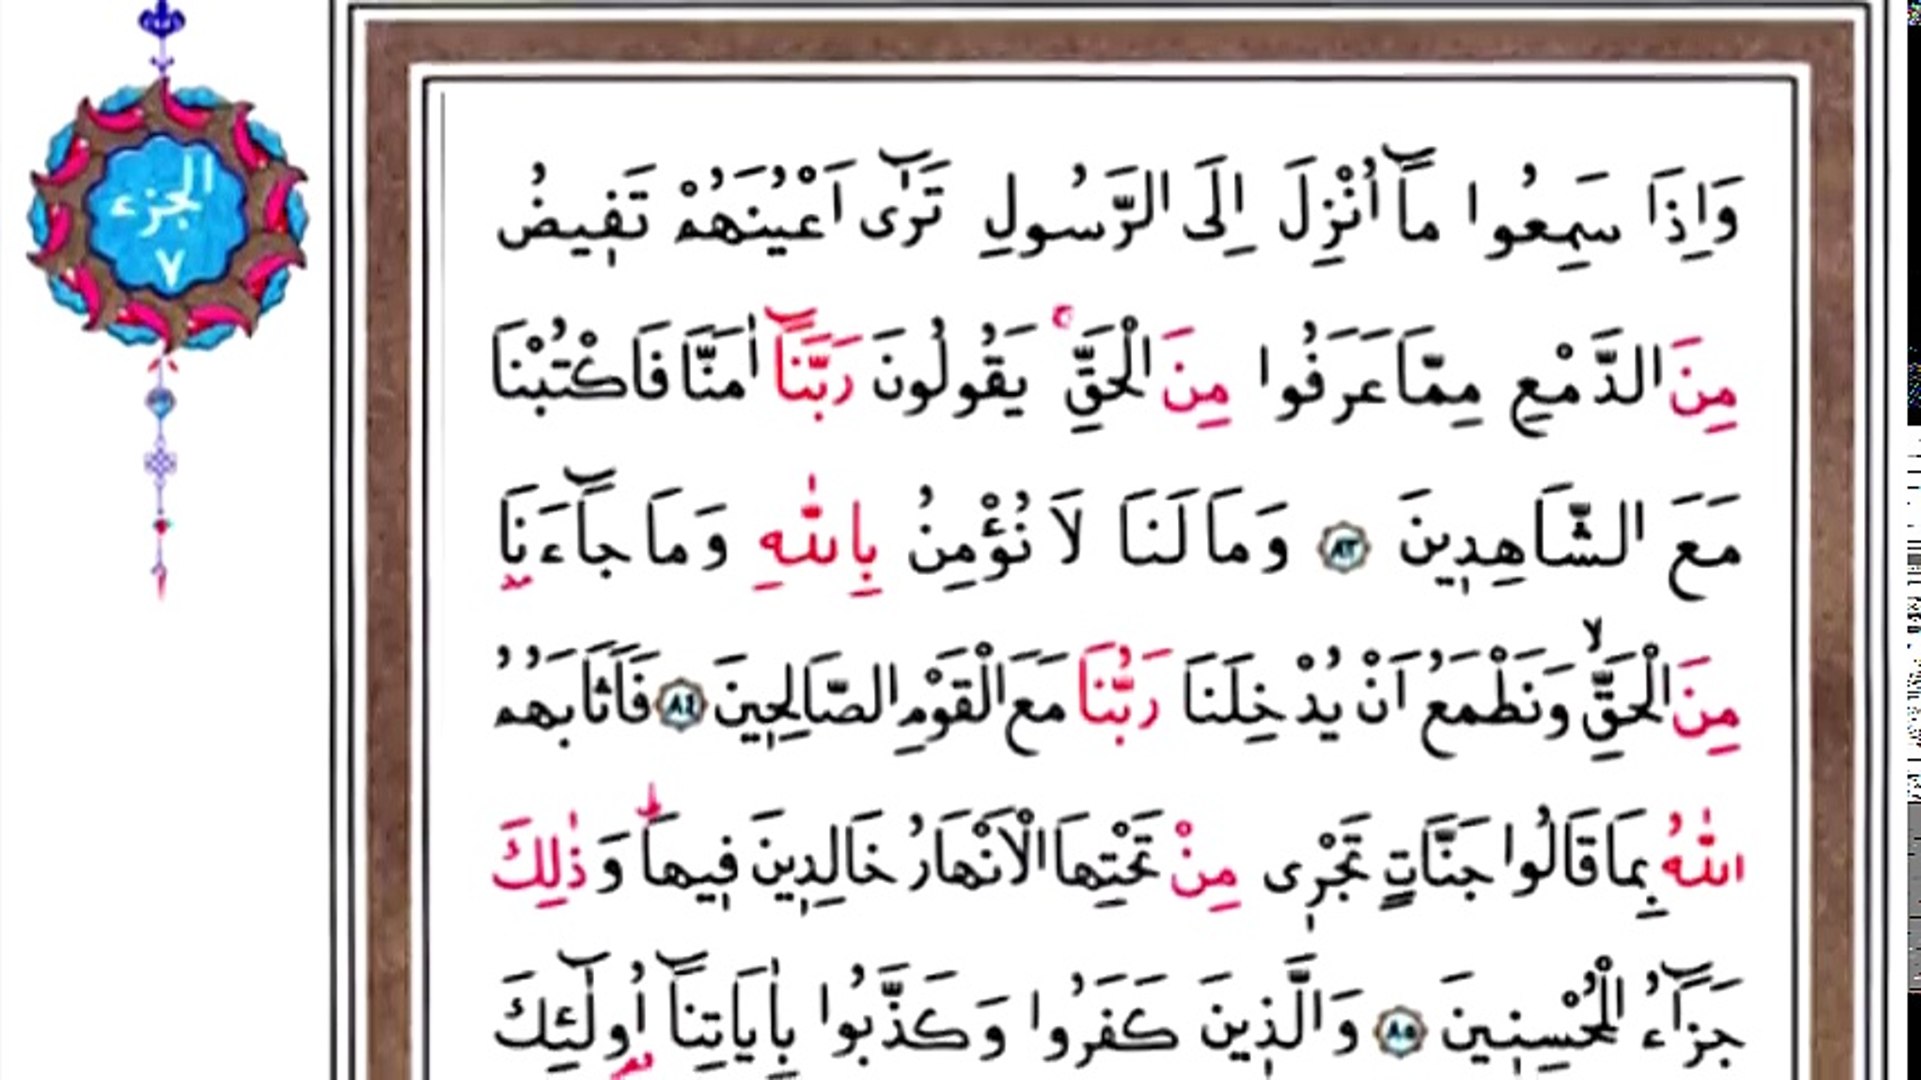 الجزء
٧
وَاِذَا سَمِعُوا مَٓا اُنْزِلَ اِلَى الرَّسُولِ تَرٰٓى اَعْيُنَهُمْ تَف۪يضُ
مِنَ الدَّمْعِ مِمَّا عَرَفُوا مِنَ الْحَقِّۚ يَقُولُونَ رَبَّنَٓا اٰمَنَّا فَاكْتُبْنَا
مَعَ الشَّاهِد۪ينَ ٨٣ وَمَا لَنَا لَا نُؤْمِنُ بِاللّٰهِ وَمَا جَٓاءَنَا
مِنَ الْحَقِّۙ وَنَطْمَعُ اَنْ يُدْخِلَنَا رَبُّنَا مَعَ الْقَوْمِ الصَّالِح۪ينَ ٨٤ فَاَثَابَهُمُ
اللّٰهُ بِمَا قَالُوا جَنَّاتٍ تَجْر۪ى مِنْ تَحْتِهَا الْاَنْهَارُ خَالِد۪ينَ ف۪يهَاۜ وَذٰلِكَ
جَزَٓاءُ الْمُحْسِن۪ينَ ٨٥ وَالَّذ۪ينَ كَفَرُوا وَكَذَّبُوا بِاٰيَاتِنَٓا اُو۬لٰٓئِكَ